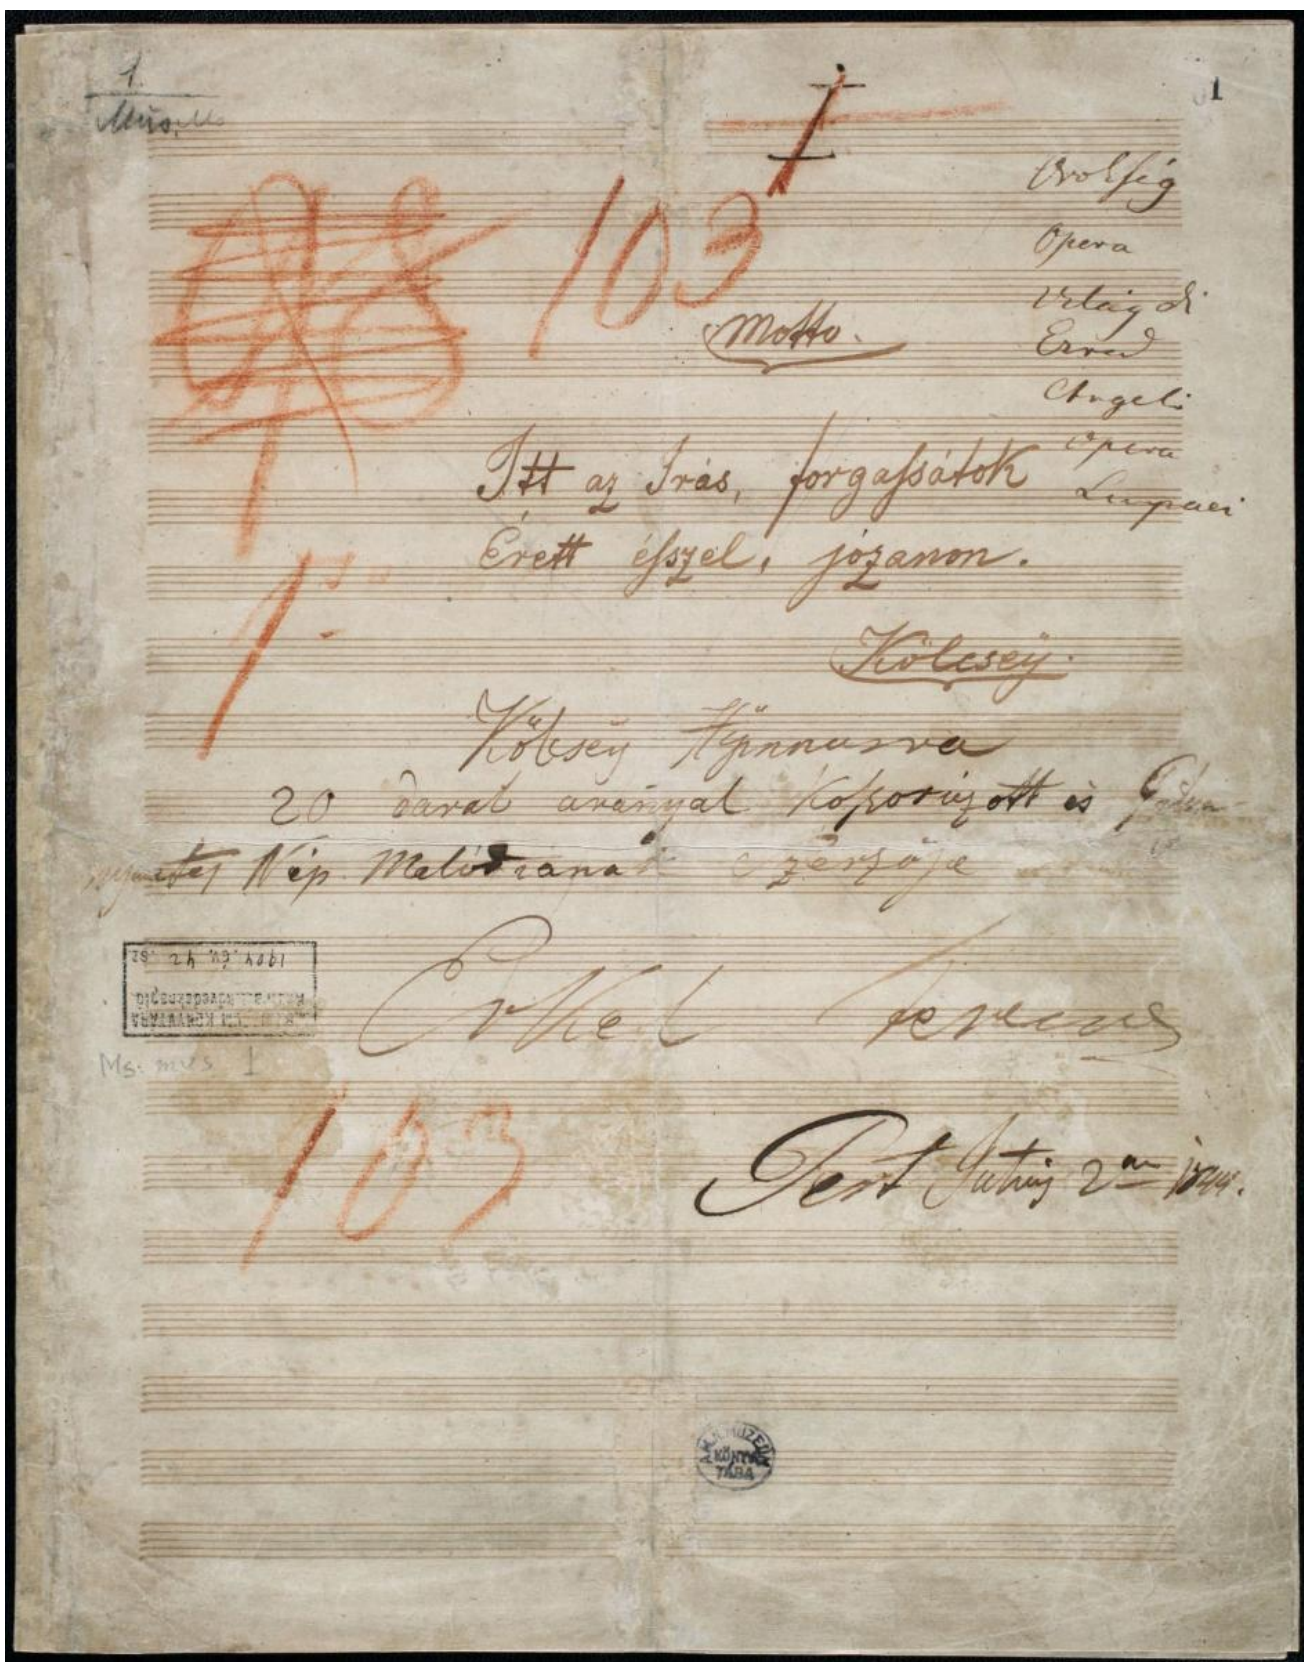 1.
Mus.
1
103
Motto.
Opera
Világ di
Angeli
Opera
Itt az Irás, forgaſsátok
Érett éſszel, józanon.
Kölcsey.
Kölcsey Hymnusra
20 darab arányal Koſzorúzott és
Nép Melódiának Szerzője
Erkel Ferencz
1904. év. 42. sz.
KÖNYVTÁRA
Ms. mus. 1
103
Pest Julius 2án 1844.
MUZEUM
KÖNYV
TÁRA